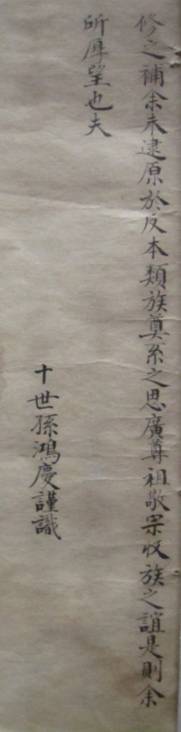 修之補余未逮原於反本類族奠系之思廣尊祖敬宗收族之誼是則余
所厚望也夫
十世孫鴻慶謹識